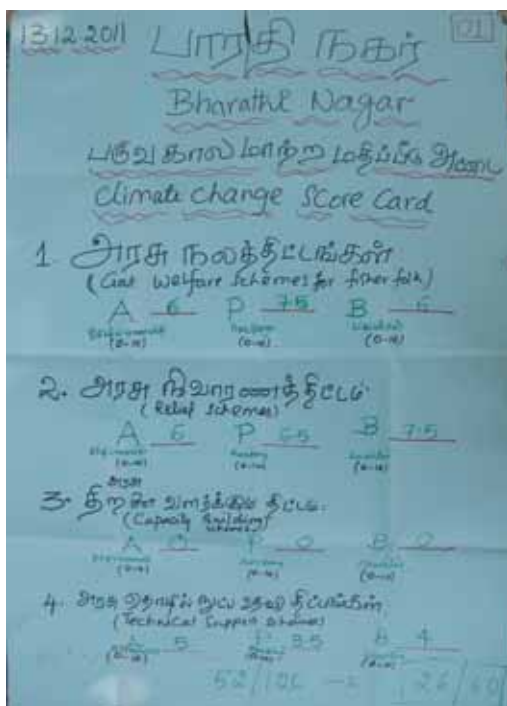 13 12 2011 பாரதி நகர் 01
Bharathi Nagar
பருவ கால மாற்ற மதிப்பீடு அட்டை
Climate Change Score Card
1 அரசு நலத்திட்டங்கள்
(Govt Welfare Schemes for fisher folk)
A 6 P 7.5 B 6
(0-10) (0-10) (0-10)
2. அரசு நிவாரணத்திட்டம்
(Relief Schemes)
A 6 P 6.5 B 7.5
(0-10) (0-10) (0-10)
அரசு
3. திறன் வளர்க்கும் திட்டம்
(Capacity Building Schemes)
A 0 P 0 B 0
(0-10) (0-10) (0-10)
4. அரசு தொழில் நுட்ப உதவி திட்டங்கள்
(Technical Support Schemes)
A 5 P 3.5 B 4
52/120 26/60